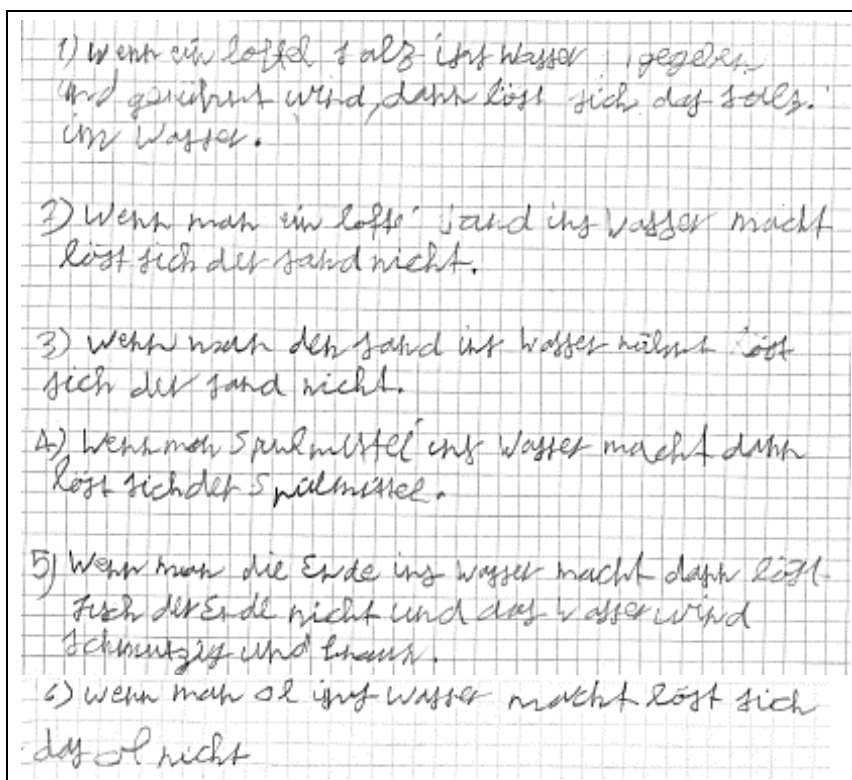 1) wenn ein loffel salz ins wasser gegeben
und gerührt wird, dann löst sich das salz.
im wasser.
2) Wenn man ein loffe sand ins wasser macht
löst sich der sand nicht.
3) wenn man den sand ins wasser rührt löst
sich der sand nicht.
4) Wenn man Spulmittel ins wasser macht dann
löst sich der Spülmittel.
5) Wenn man die Erde ins wasser macht dann löst
sich der Erde nicht und das wasser wird
schmutzig und braun.
6) wenn man ol ins wasser macht löst sich
das ol nicht